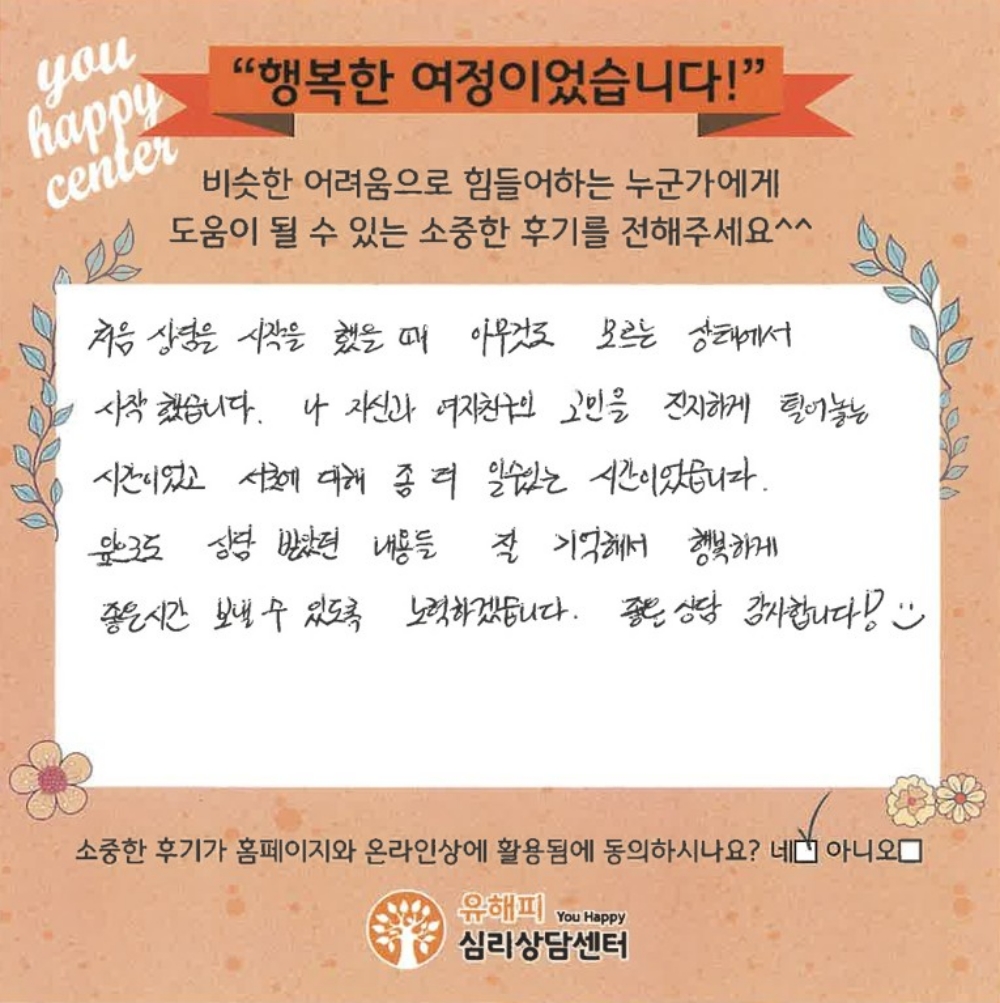 you
happy
center
“행복한 여정이었습니다!”
비슷한 어려움으로 힘들어하는 누군가에게
도움이 될 수 있는 소중한 후기를 전해주세요^^
처음 상담을 시작을 했을 때 아무것도 모르는 상태에서
시작 했습니다. 나 자신과 여자친구의 고민을 진지하게 털어놓는
시간이었고 서로에 대해 좀 더 알수있는 시간이었습니다.
앞으로도 상담 받았던 내용들 잘 기억해서 행복하게
좋은시간 보낼 수 있도록 노력하겠습니다. 좋은 상담 감사합니다!
소중한 후기가 홈페이지와 온라인상에 활용됨에 동의하시나요? 네□ 아니오□
유해피 You Happy
심리상담센터